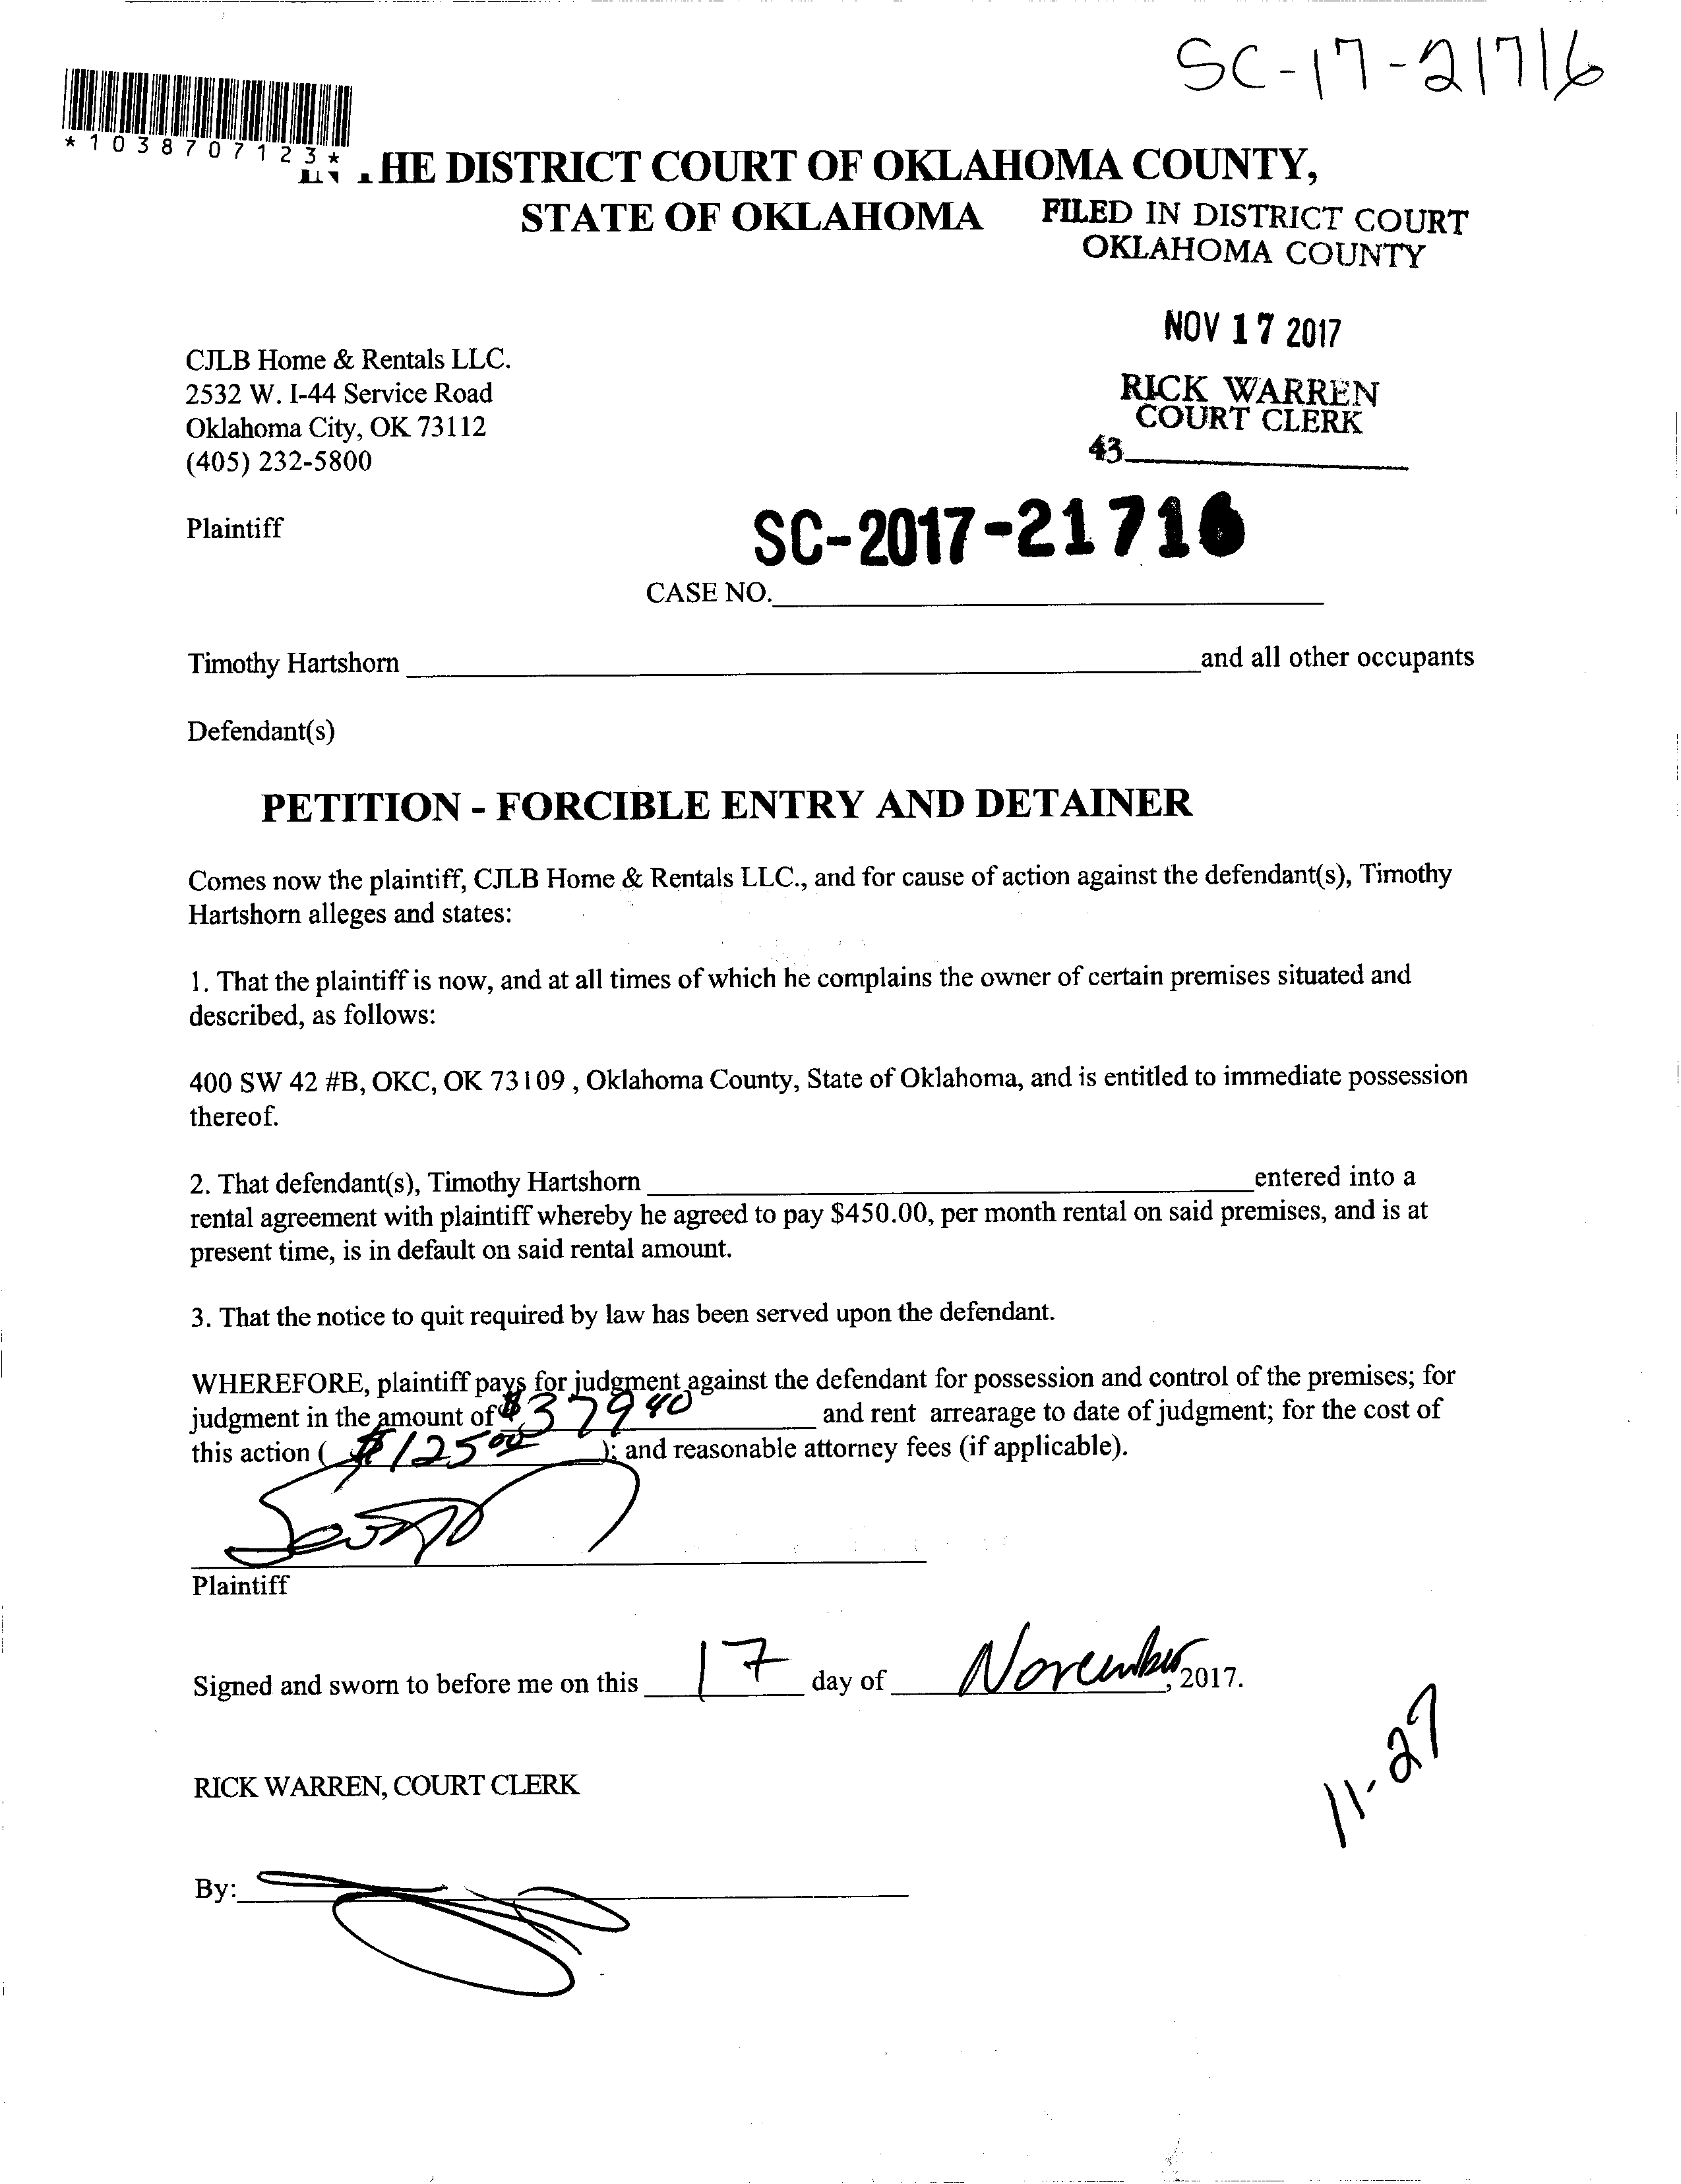 SC-17-21716
*1038707123*
HE DISTRICT COURT OF OKLAHOMA COUNTY,
STATE OF OKLAHOMA
FILED IN DISTRICT COURT
OKLAHOMA COUNTY
NOV 17 2017
RICK WARREN
COURT CLERK
43
CJLB Home & Rentals LLC.
2532 W. I-44 Service Road
Oklahoma City, OK 73112
(405) 232-5800
Plaintiff
SC-2017-21716
CASE NO.
Timothy Hartshorn and all other occupants
Defendant(s)
PETITION - FORCIBLE ENTRY AND DETAINER
Comes now the plaintiff, CJLB Home & Rentals LLC., and for cause of action against the defendant(s), Timothy
Hartshorn alleges and states:
1. That the plaintiff is now, and at all times of which he complains the owner of certain premises situated and
described, as follows:
400 SW 42 #B, OKC, OK 73109 , Oklahoma County, State of Oklahoma, and is entitled to immediate possession
thereof.
2. That defendant(s), Timothy Hartshorn entered into a
rental agreement with plaintiff whereby he agreed to pay $450.00, per month rental on said premises, and is at
present time, is in default on said rental amount.
3. That the notice to quit required by law has been served upon the defendant.
WHEREFORE, plaintiff pays for judgment against the defendant for possession and control of the premises; for
judgment in the amount of $ 379 40 and rent arrearage to date of judgment; for the cost of
this action ( $125 00 ); and reasonable attorney fees (if applicable).
Plaintiff
Signed and sworn to before me on this 17 day of November, 2017.
11-27
RICK WARREN, COURT CLERK
By: